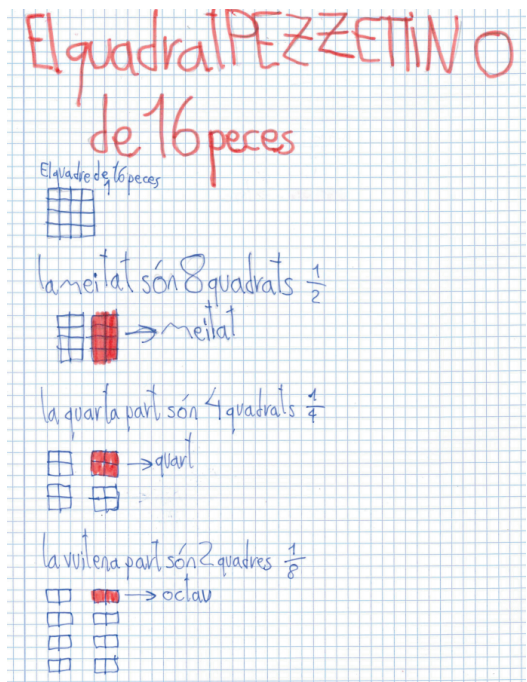 El quadrat PEZZETTINO
de 16 peces
El quadre de 16 peces
1
la meitat són 8 quadrats 1/2
→ meitat
la quarta part són 4 quadrats 1/4
→ quart
la vuitena part són 2 quadres 1/8
→ octau